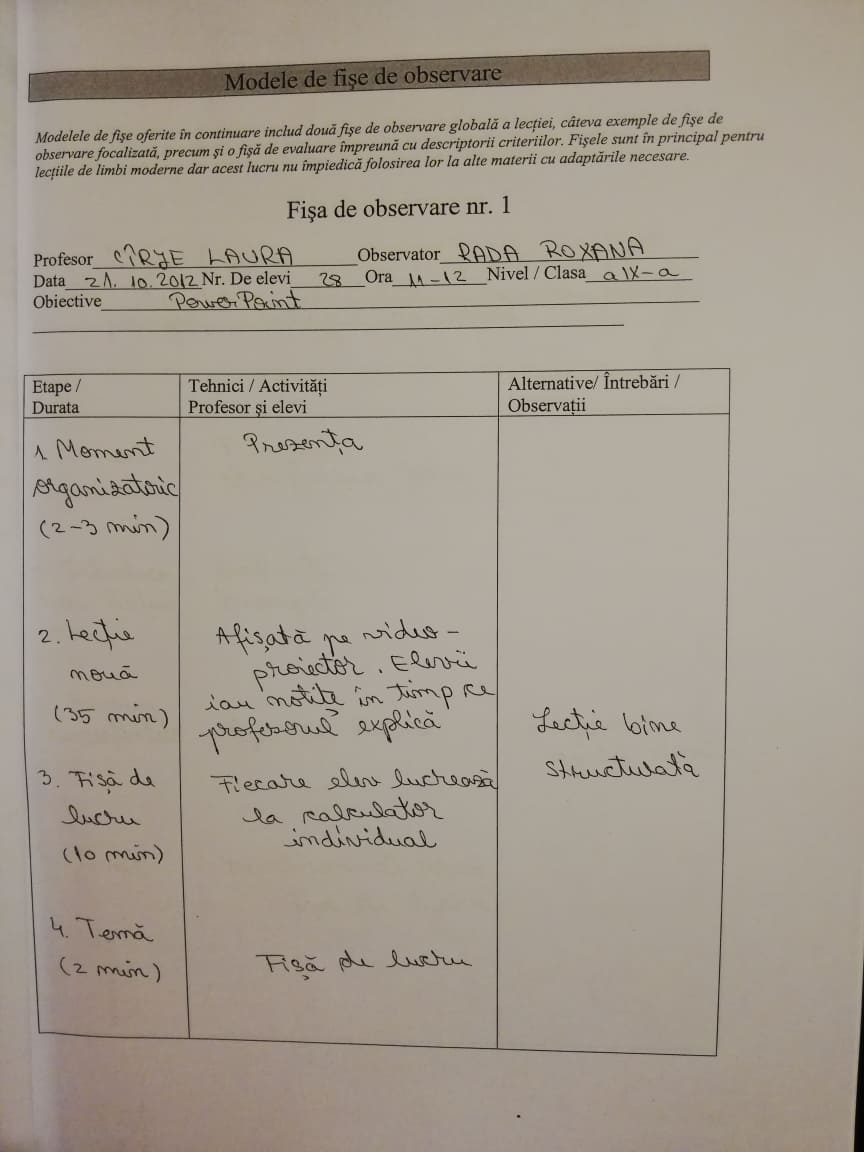 Modele de fișe de observare
Modelele de fișe oferite în continuare includ două fișe de observare globală a lecției, câteva exemple de fișe de
observare focalizată, precum și o fișă de evaluare împreună cu descriptorii criteriilor. Fișele sunt în principal pentru
lecțiile de limbi moderne dar acest lucru nu împiedică folosirea lor la alte materii cu adaptările necesare.
Fișa de observare nr. 1
Profesor CÎRJE LAURA Observator RADA ROXANA
Data 21.10.2012 Nr. De elevi 28 Ora 11-12 Nivel / Clasa a IX-a
Obiective PowerPoint
Etape /
Durata
Tehnici / Activități
Profesor și elevi
Alternative/ Întrebări /
Observații
1. Moment
organizatoric
(2-3 min)
Prezența
2. Lecție
nouă
(35 min)
Afișată pe video-
proiector. Elevii
iau notițe în timp ce
profesorul explică
Lecție bine
structurată
3. Fișă de
lucru
(10 min)
Fiecare elev lucrează
la calculator
individual
4. Temă
(2 min)
Fișă de lucru